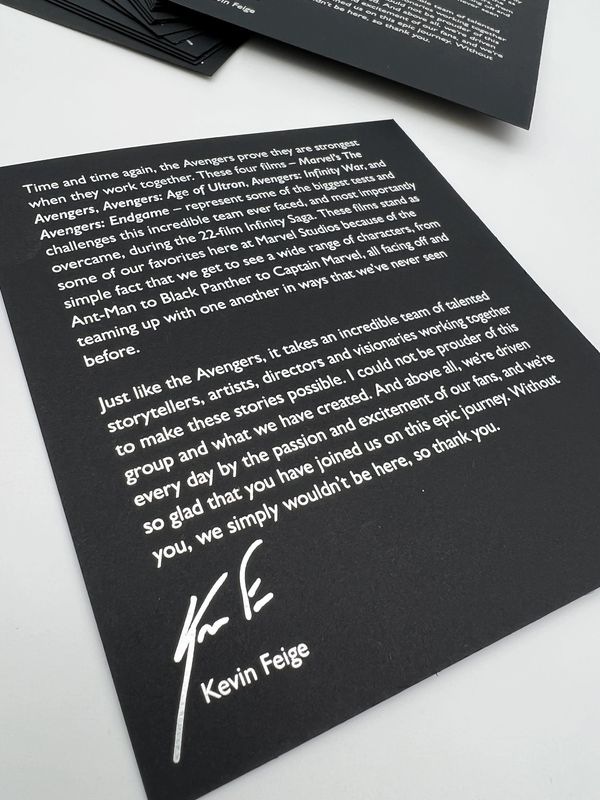 Kevin Feige
Time and time again, the Avengers prove they are strongest
when they work together. These four films – Marvel's The
Avengers, Avengers: Age of Ultron, Avengers: Infinity War, and
Avengers: Endgame – represent some of the biggest tests and
challenges this incredible team ever faced, and most importantly
overcame, during the 22-film Infinity Saga. These films stand as
some of our favorites here at Marvel Studios because of the
simple fact that we get to see a wide range of characters, from
Ant-Man to Black Panther to Captain Marvel, all facing off and
teaming up with one another in ways that we've never seen
before.
Just like the Avengers, it takes an incredible team of talented
storytellers, artists, directors and visionaries working together
to make these stories possible. I could not be prouder of this
group and what we have created. And above all, we're driven
every day by the passion and excitement of our fans, and we're
so glad that you have joined us on this epic journey. Without
you, we simply wouldn't be here, so thank you.
Kevin Feige